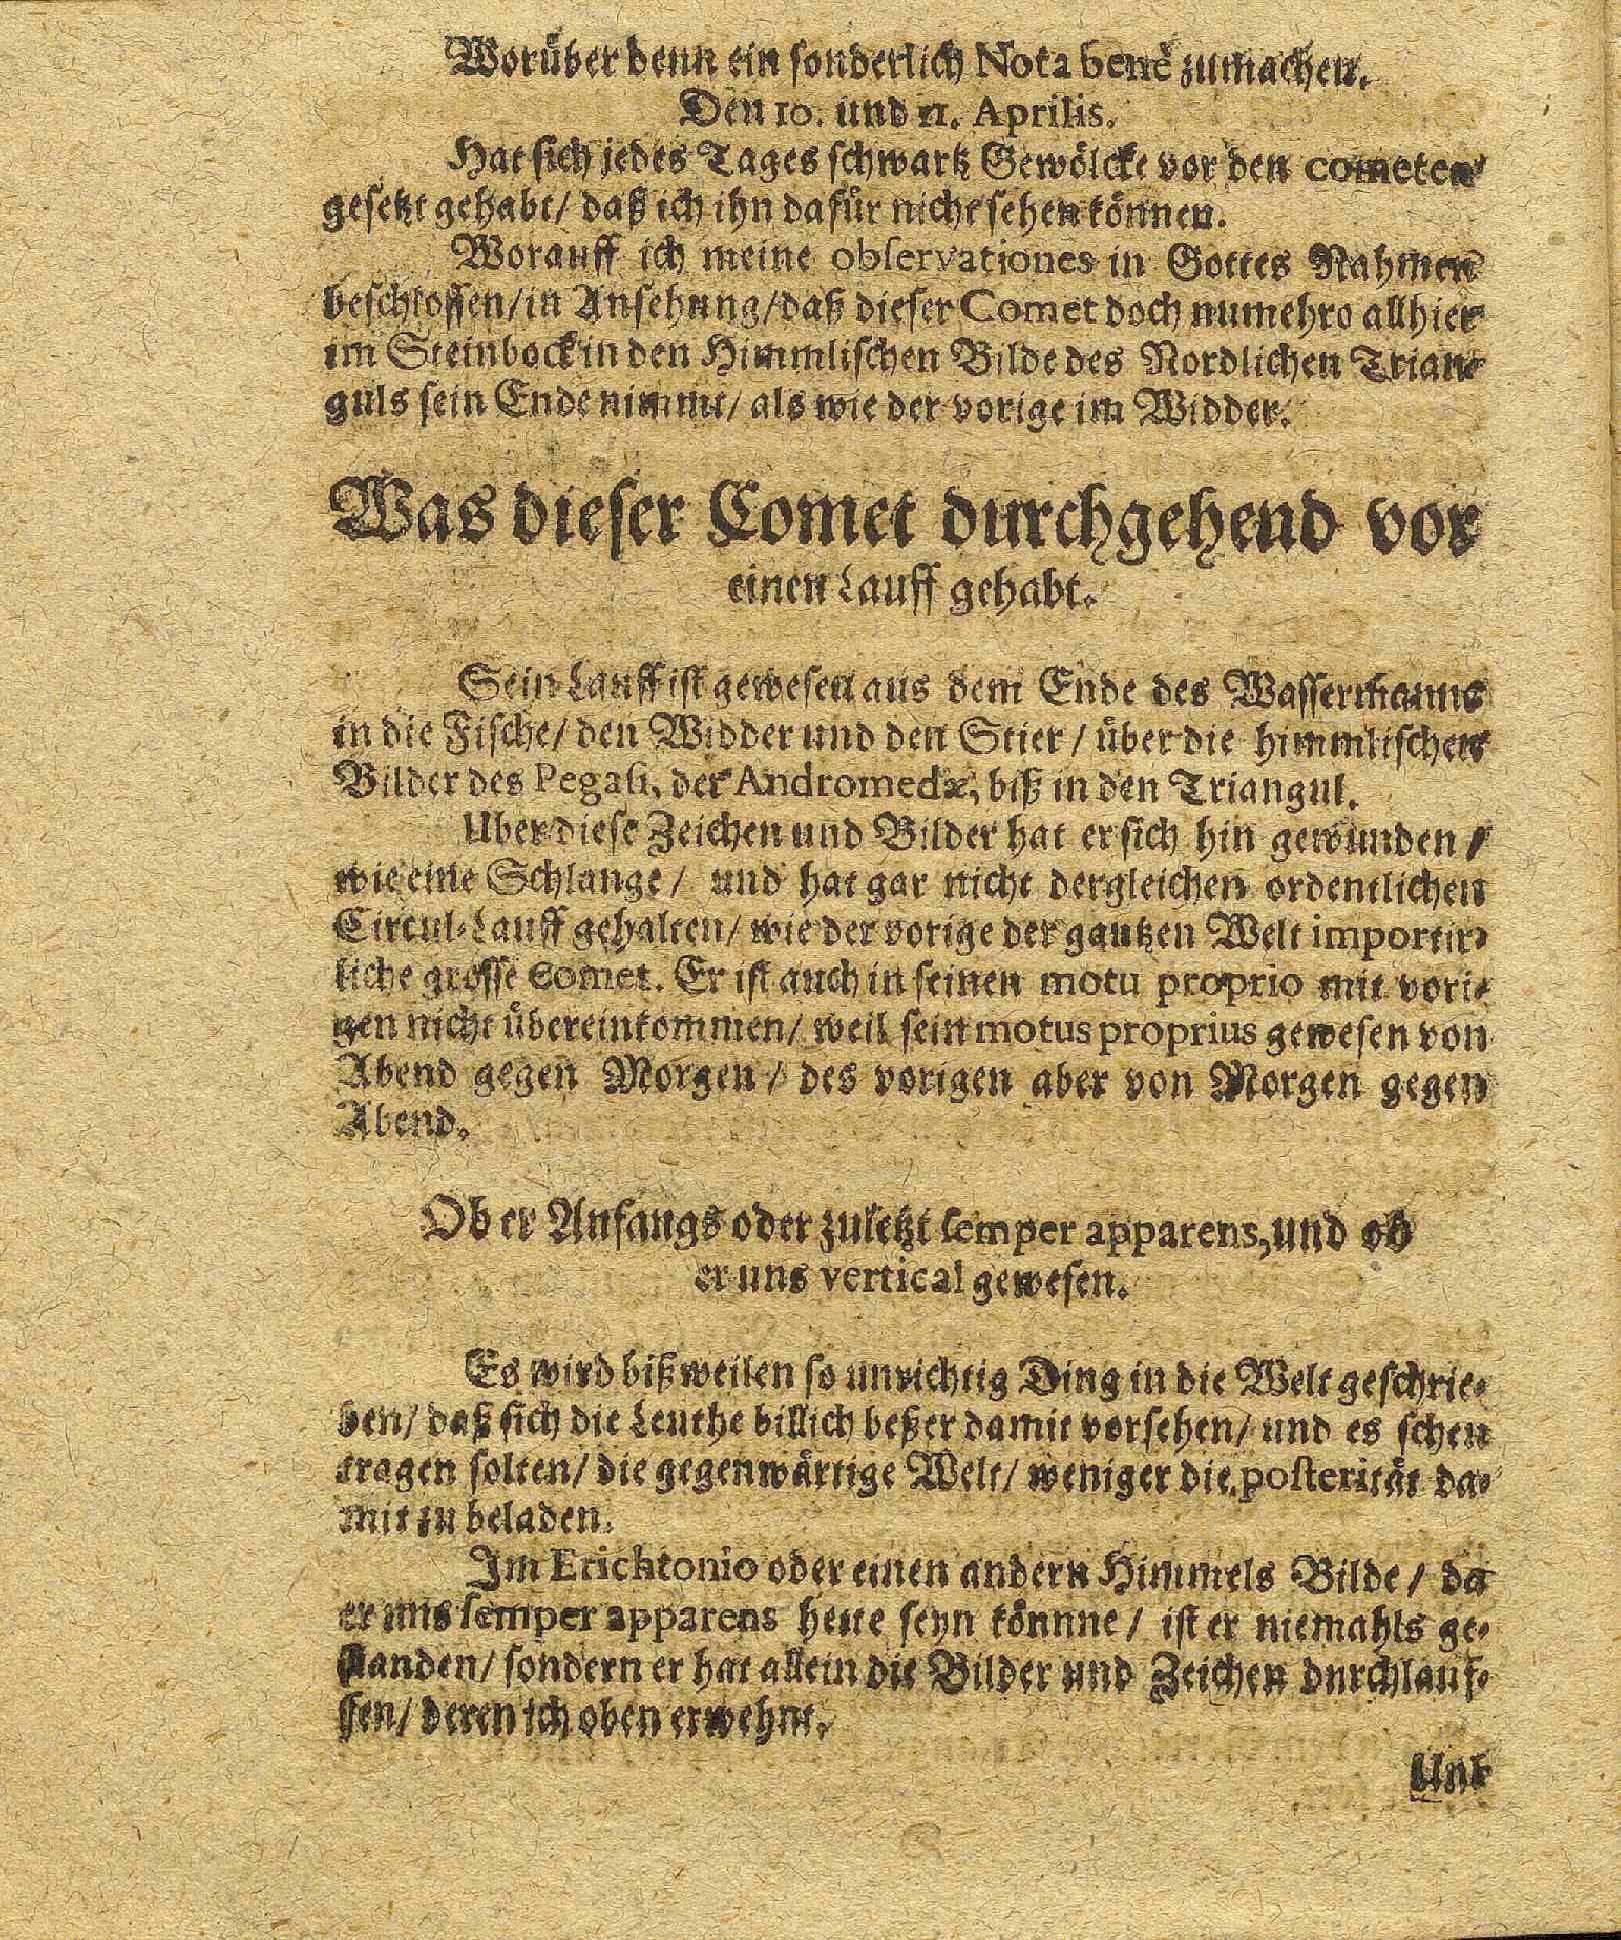 Worüber denn ein sonderlich Nota benè zumachen.
Den 10. und 11. Aprilis.
Hat sich jedes Tages schwartz Gewölcke vor den cometen
gesetzt gehabt/ daß ich ihn dafür nicht sehen können.
Worauff ich meine observationes in Gottes Nahmen
beschlossen/ in Ansehung/ daß dieser Comet doch numehro allhier
im Steinbock in den Himmlischen Bilde des Nordlichen Trian-
guls sein Ende nimmt/ als wie der vorige im Widder.
Was dieser Comet durchgehend vor
einen Lauff gehabt.
Sein Lauff ist gewesen aus dem Ende des Wassermanns
in die Fische/ den Widder und den Stier/ über die himmlischen
Bilder des Pegasi, der Andromedæ, biß in den Triangul.
Uber diese Zeichen und Bilder hat er sich hin gewunden/
wie eine Schlange/ und hat gar nicht dergleichen ordentlichen
Circul-Lauff gehalten/ wie der vorige der gantzen Welt importir-
liche grosse Comet. Er ist auch in seinen motu proprio mit vori-
gen nicht übereinkommen/ weil sein motus proprius gewesen von
Abend gegen Morgen/ des vorigen aber von Morgen gegen
Abend.
Ob er Anfangs oder zuletzt semper apparens, und ob
er uns vertical gewesen.
Es wird bißweilen so unrichtig Ding in die Welt geschrie-
ben/ daß sich die Leuthe billich beßer damit vorsehen/ und es scheu
tragen solten/ die gegenwärtige Welt/ weniger die posterität da-
mit zu beladen.
Im Erichtonio oder einen andern Himmels Bilde/ da
er uns semper apparens hette seyn könnne/ ist er niemahls ge-
standen/ sondern er hat allein die Bilder und Zeichen durchlauf-
fen/ deren ich oben erwehnt.
Und